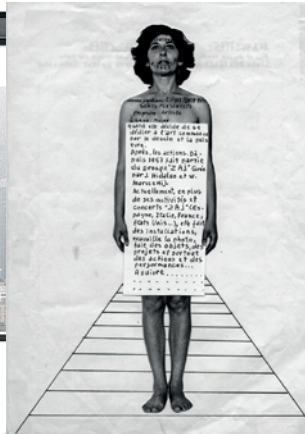 quand elle décide de se
dédier à l'art commence
par le dessin et la pein
ture.
Après, les actions. De-
puis 1967 fait partie
du groupe "Z A J" (créé
par J. Hidalgo et W.
Marchetti).
Actuellement, en plus
de ses activités et
concerts "Z A J" (Es-
pagne, Italie, France,
Etats Unis...), elle fait
des installations,
travaille la photo,
fait des objets, des
projets et surtout
des actions et des
performances...
A suivre........